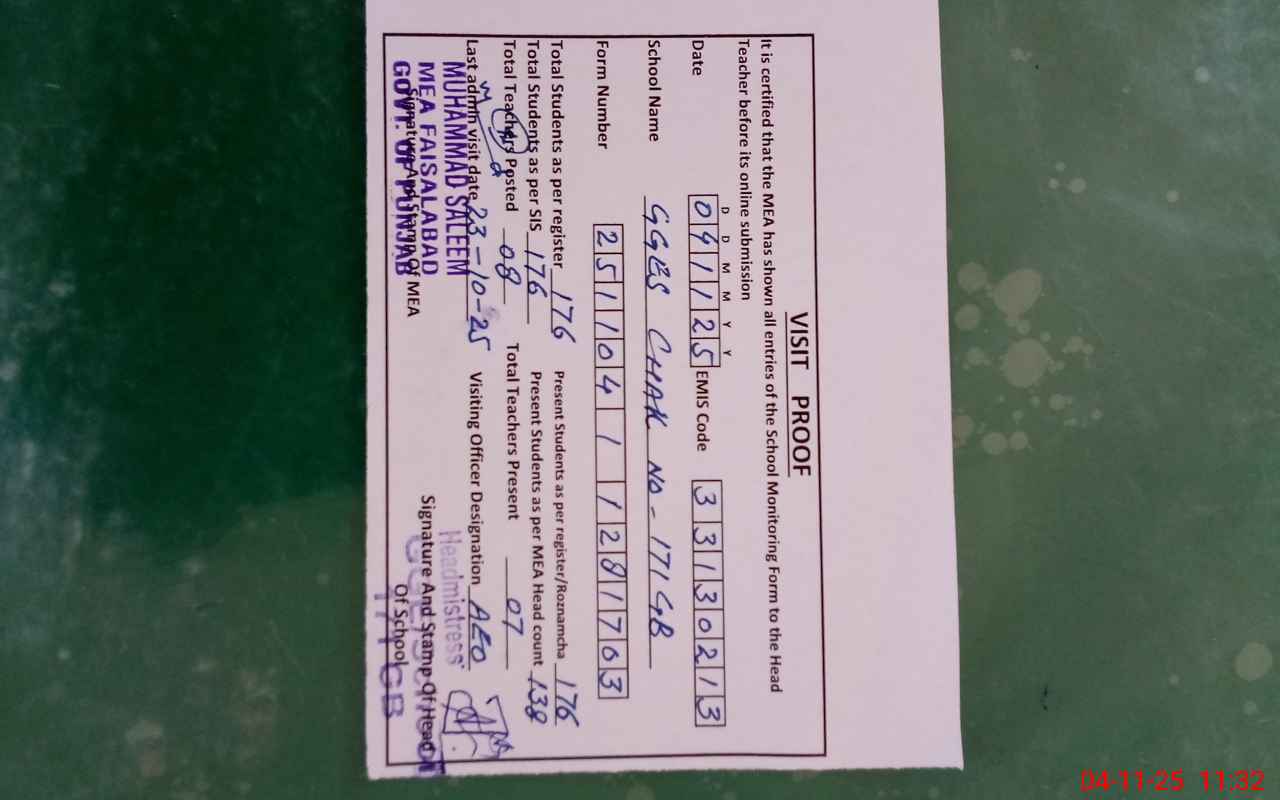 VISIT PROOF
It is certified that the MEA has shown all entries of the School Monitoring Form to the Head
Teacher before its online submission
D D M M Y Y
Date 041125 EMIS Code 33130213
School Name GGES CHAK NO - 171 GB
Form Number 251104 1 1281763
Total Students as per register 176 Present Students as per register/Roznamcha 176
Total Students as per SIS 176 Present Students as per MEA Head count 138
Total Teachers Posted 08 Total Teachers Present 07
Last admin visit date 23-10-25 Visiting Officer Designation AEO
MUHAMMAD SALEEM
MEA FAISALABAD
GOVT. OF PUNJAB
Signature And Stamp Of MEA
Headmistress
Signature And Stamp Of Head
Of School
171 GB
04-11-25 11:32